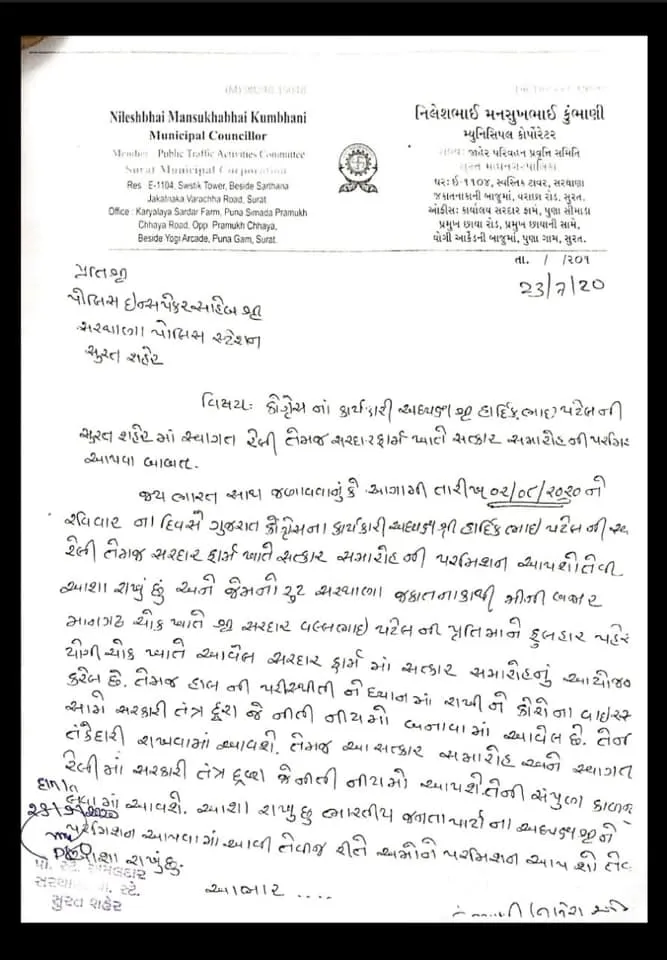 Nileshbhai Mansukhabhai Kumbhani
Municipal Councillor
Member : Public Traffic Activities Committee
Surat Municipal Corporation
Res : E-1104, Swstik Tower, Beside Sarthana
Jakatnaka Varachha Road, Surat.
Office : Karyalaya Sardar Farm, Puna Simada Pramukh
Chhaya Road, Opp. Pramukh Chhaya,
Beside Yogi Arcade, Puna Gam, Surat.
નિલેશભાઈ મનસુખભાઈ કુંભાણી
મ્યુનિસિપલ કોર્પોરેટર
સભ્ય : જાહેર પરિવહન પ્રવૃત્તિ સમિતિ
સુરત મહાનગરપાલિકા
ઘર: ઇ-૧૧૦૪, સ્વસ્તિક ટાવર, સરથાણા
જકાતનાકાની બાજુમાં, વરાછા રોડ, સુરત.
ઓફીસ: કાર્યાલય સરદાર ફાર્મ, પુણા સીમાડા
પ્રમુખ છાયા રોડ, પ્રમુખ છાયાની સામે,
યોગી આર્કેડની બાજુમાં, પુણા ગામ, સુરત.
તા. / /૨૦૧
23/7/20
પ્રતિ શ્રી
પોલિસ ઇન્સ્પેકટર સાહેબ શ્રી
સરથાણા પોલિસ સ્ટેશન
સુરત શહેર
વિષય: કોંગ્રેસ નાં કાર્યકારી અધ્યક્ષ શ્રી હાર્દિકભાઇ પટેલ ની
સુરત શહેર માં સ્વાગત રેલી તેમજ સરદાર ફાર્મ ખાતે સત્કાર સમારોહ ની
આપવા બાબત.
જય ભારત સાથ જણાવવાનું કે આગામી તારીખ ૦૨/૦૮/૨૦૨૦ ને
રવિવાર ના દિવસે ગુજરાત કોંગ્રેસના કાર્યકારી અધ્યક્ષ શ્રી હાર્દિકભાઇ પટેલ ની
રેલી તેમજ સરદાર ફાર્મ ખાતે સત્કાર સમારોહ ની પરમિશન આપશો તેવી
આશા રાખું છું અને જેમનો રુટ સરથાણા જકાતનાકાથી મીની બજાર
માનગઢ ચોક ખાતે શ્રી સરદાર વલ્લભભાઇ પટેલ ની પ્રતિમાને ફુલહાર પહેર
યોગી ચોક ખાતે આવેલ સરદાર ફાર્મ માં સત્કાર સમારોહનું આયોજન
કરેલ છે. તેમજ હાલ ની પરીસ્થીતી ને ધ્યાન માં રાખી ને કોરોના વાઇરસ
સામે સરકારી તંત્ર દ્વારા જે નીતી નીયમો બનાવા માં આવેલ છે. તેની
તકેદારી રાખવામાં આવશે. તેમજ આ સત્કાર સમારોહ અને સ્વાગત
રેલી માં સરકારી તંત્ર દ્વારા જે નીતી નીયમો આપશે. તેની સંપુર્ણ કાળજી
લેવામાં આવશે. આશા રાખુ છુ ભારતીય જનતા પાર્ટી ના અધ્યક્ષ શ્રી ને
પરમિશન આપવા માં આવી તેવીજ રીતે અમોને પરમિશન આપ શો તેવ
આશા રાખું છું.
આભાર ....
પો. સ્ટે. અમલદાર
સરથાણા પો. સ્ટે.
સુરત શહેર